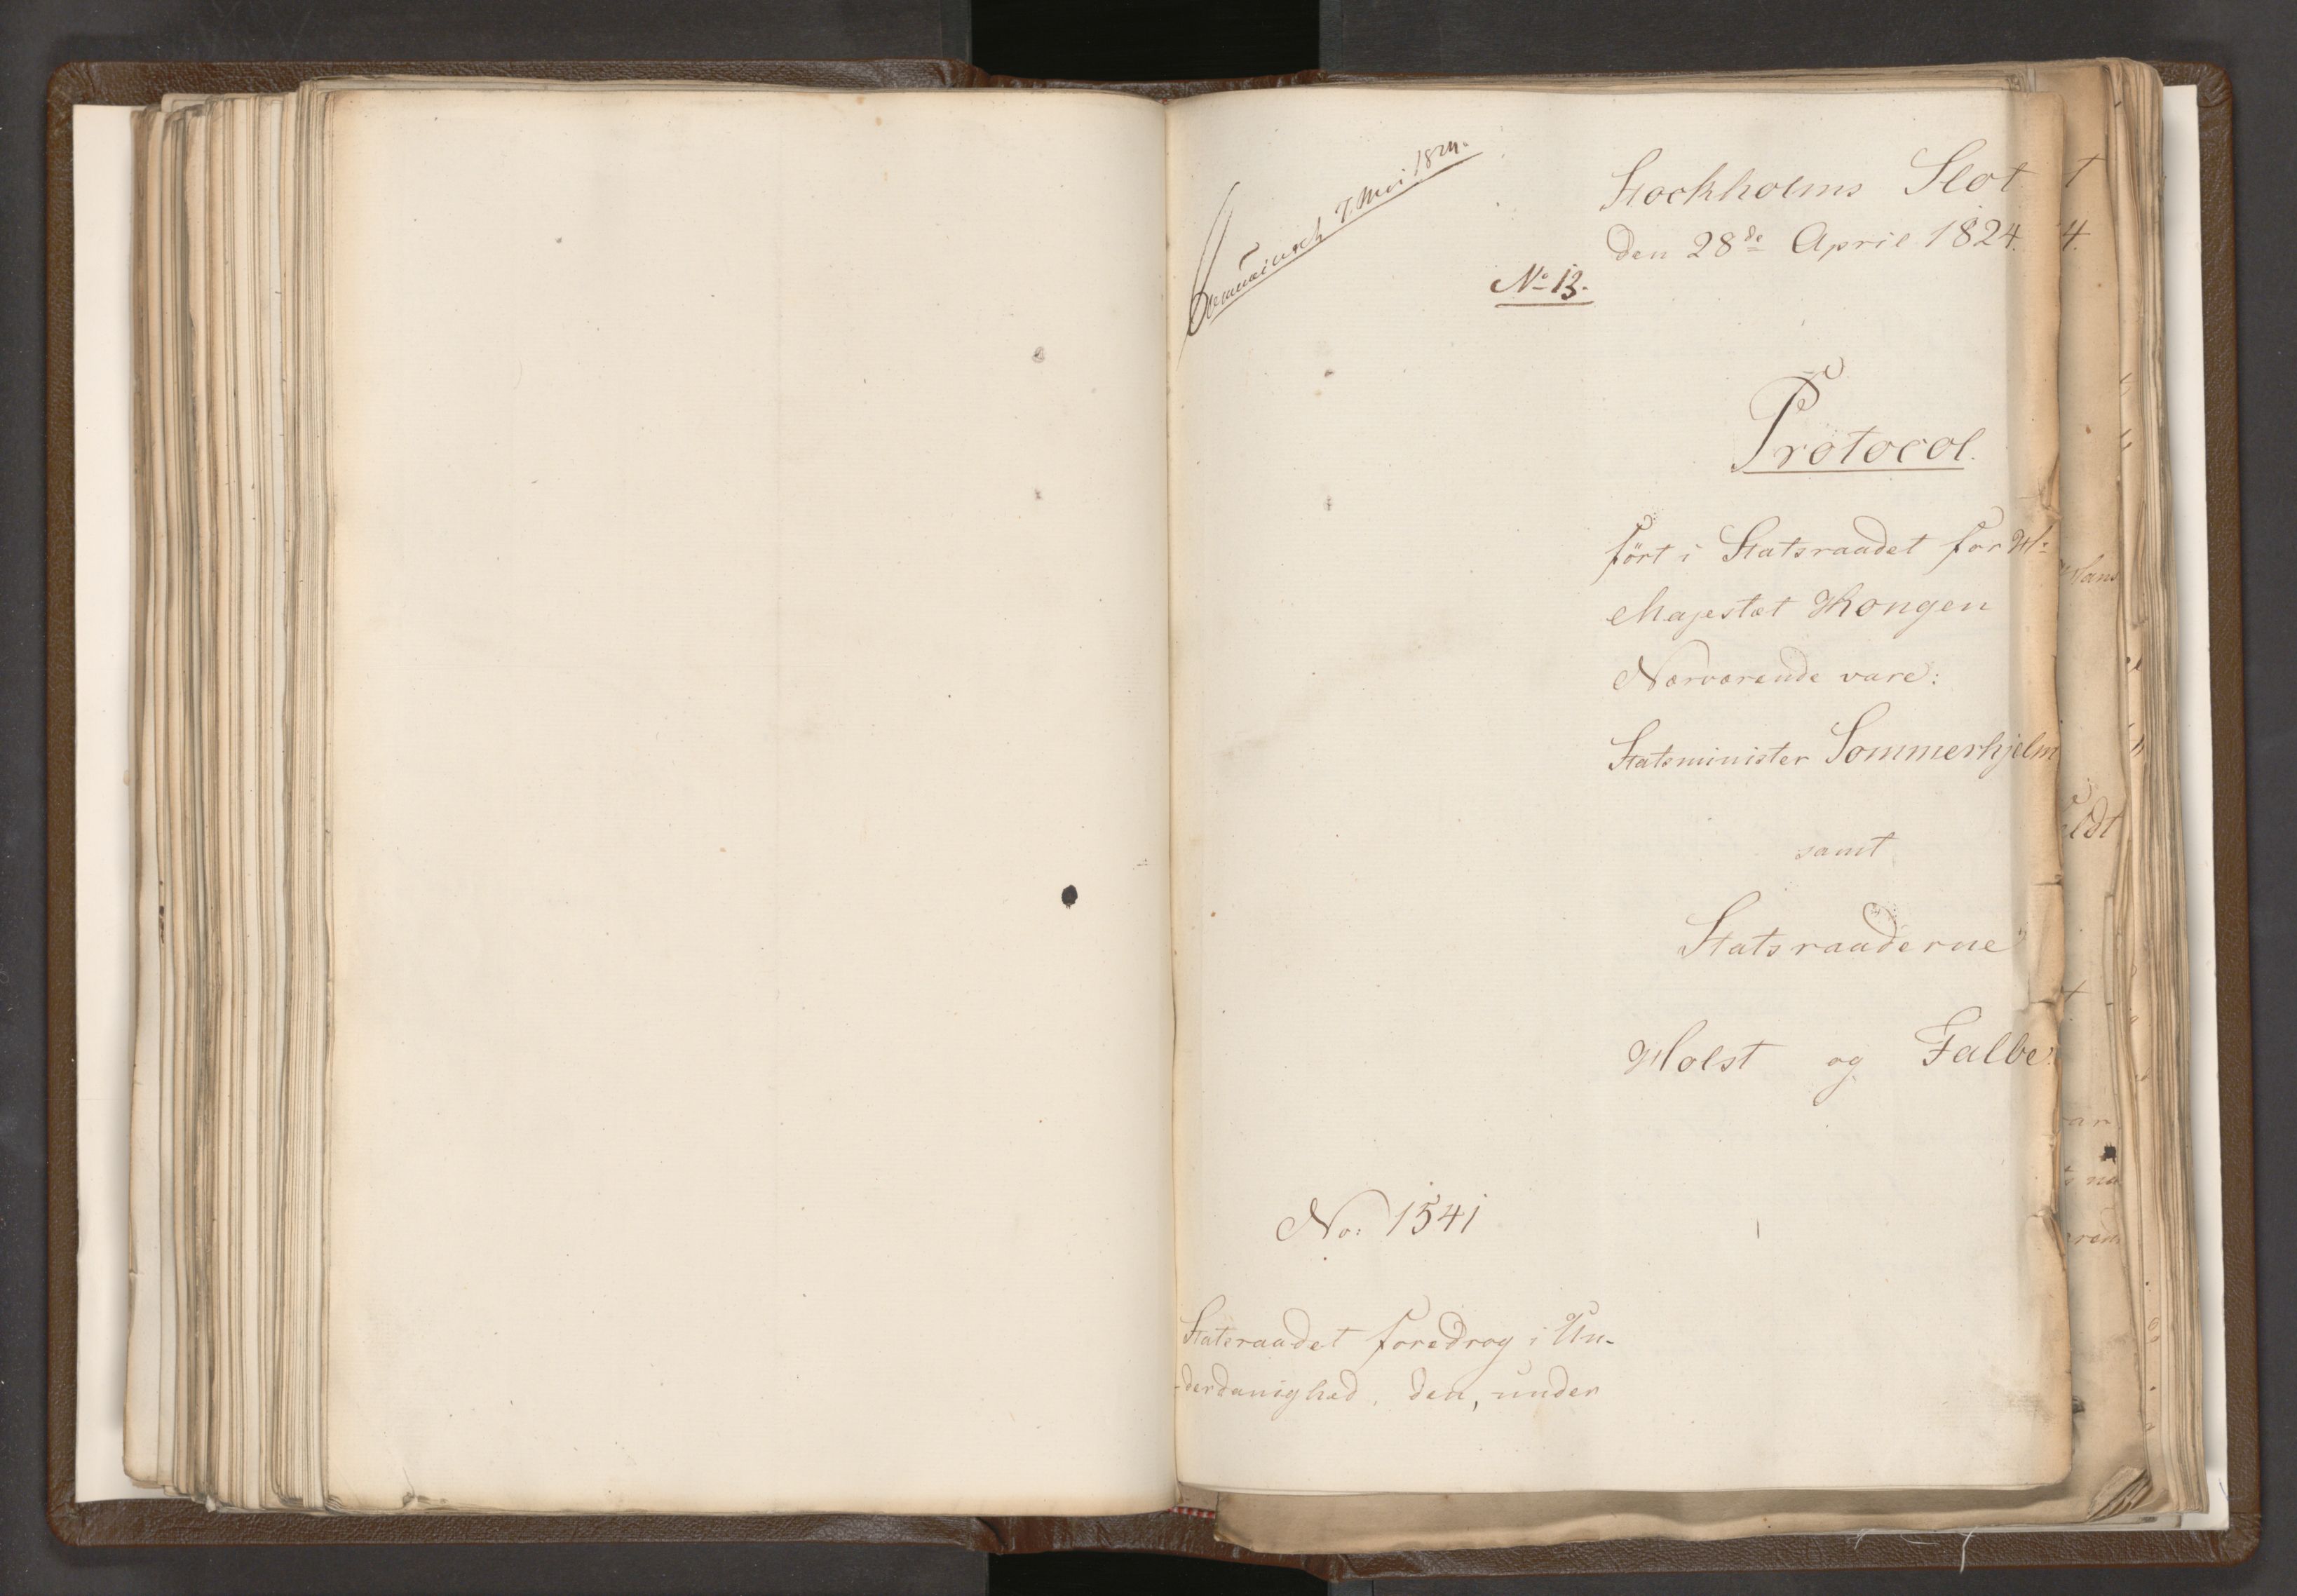 7. Mai 1824.
Stockholms Slot
den 28de April 1824.
No 13.
Protocol.
fört i Statsraadet for H:
Majestæt Kongen
Nærværende vare:
Statsminister Sommerhjelm
samt
Statsraaderne
Holst og Falbe
No: 1541
Statsraadet foredrog i Un-
-derdanighed, den, under